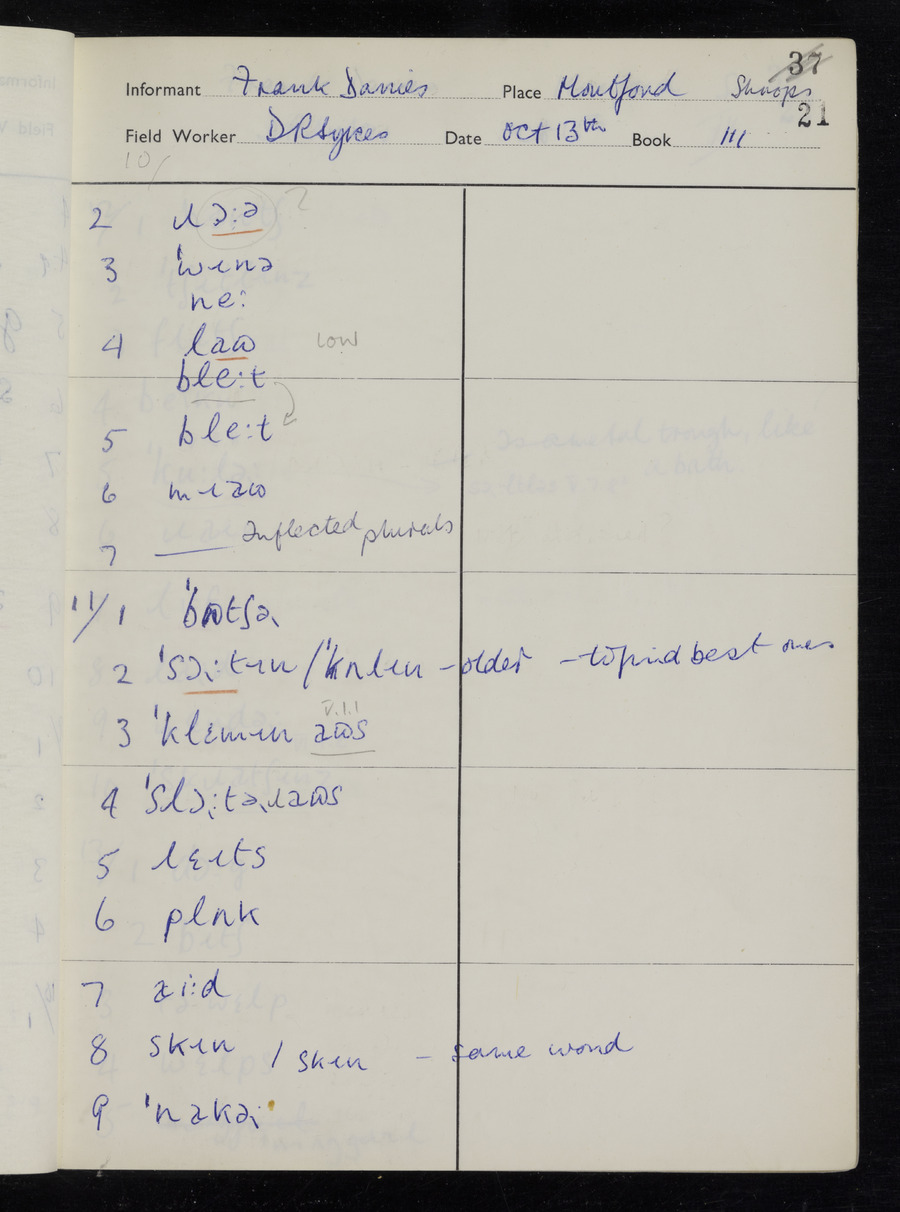 37
Informant Frank Davies Place Montford Shrops
21
Field Worker DRSykes Date Oct 13th Book III
10/
2 ɹɔ:ə ?
3 ˈwɪnə
ne:
4 laʊ low
ble:t
5 ble:t
6 mɪaʊ
7 —— Inflected plurals
11/1 ˈbʊtʃəɹ
2 ˈslɔ:tɪn / ˈkɪlɪn - older - to p best ones
3 ˈklemɪn aʊs V.1.1
4 ˈslɔ:təɹaʊs
5 lɛɪts
6 plʌk
7 aɪ:d
8 skɪn / skɪn - same word
9 ˈnakəɹ